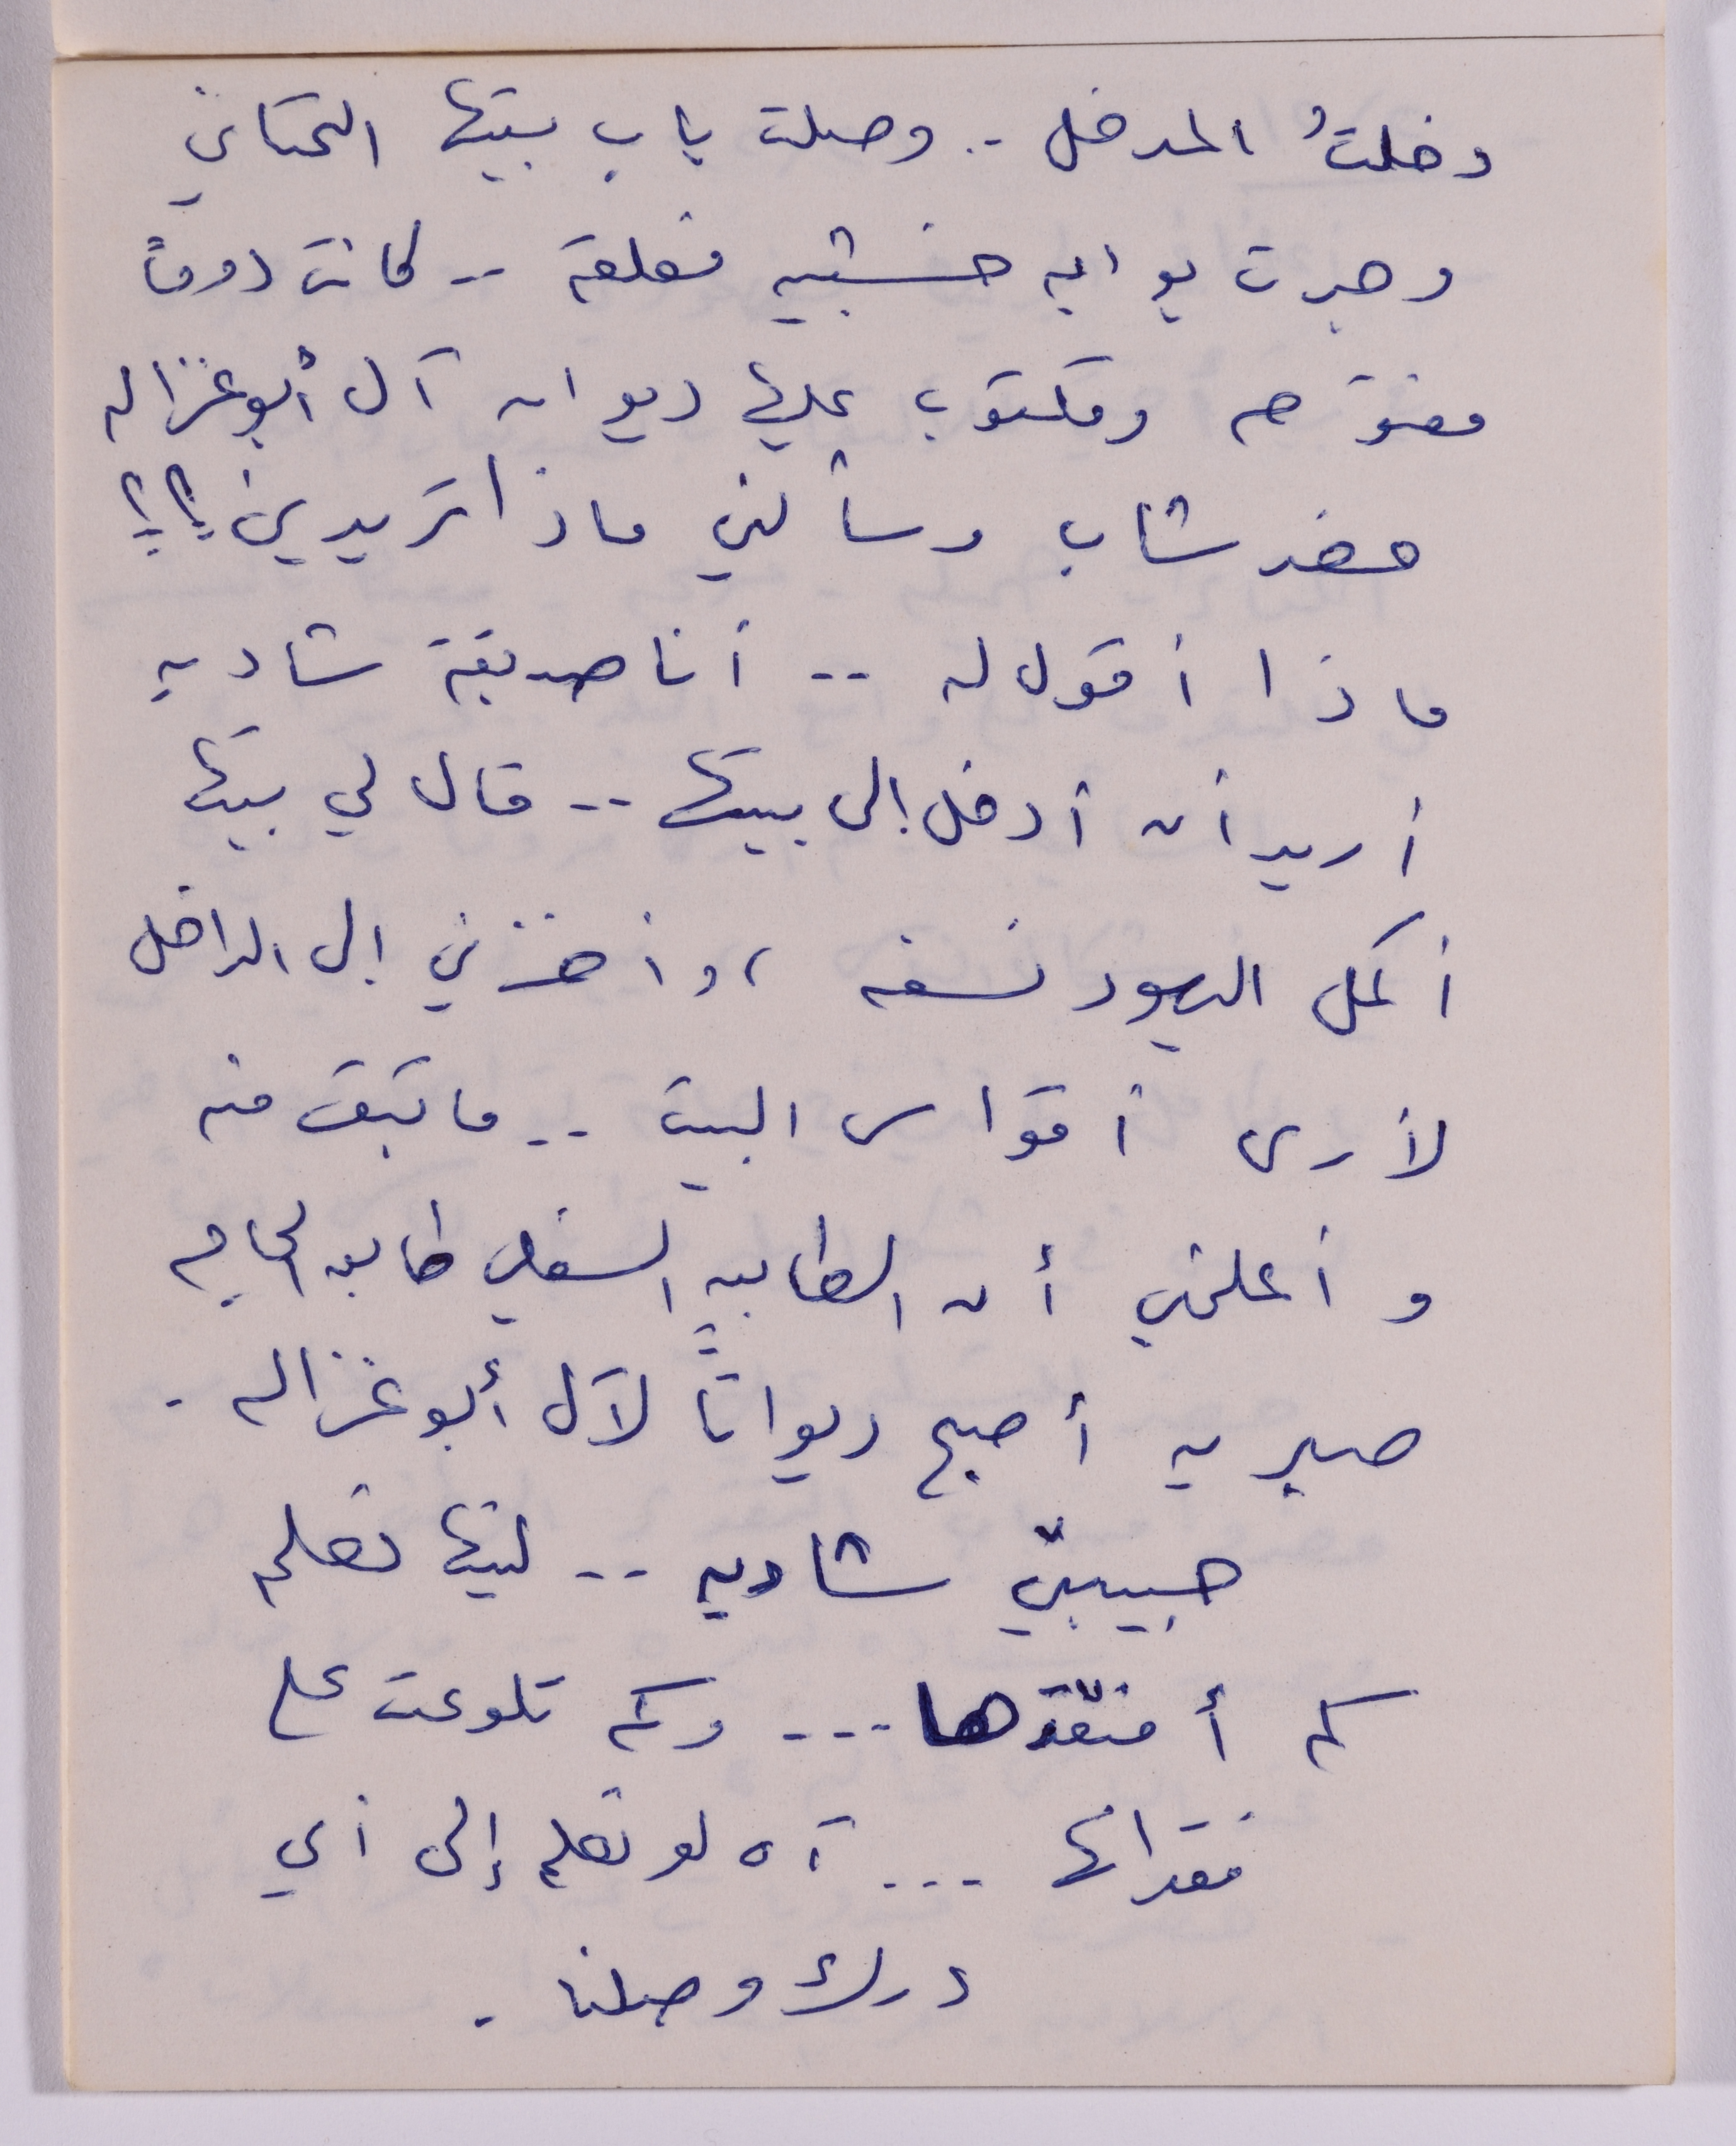 دخلتُ المدخل .. وصلت باب بيتها التحتاني
وجدت بوابه خشبيه مغلقة .. كانت دوماً
مفتوحه ومكتوب عليها ديوان آل أبوغزاله
حضر شاب وسألني ماذا تريدين؟؟
ماذا أقول له .. أنا صديقة شاديه
أريد أن أدخل إلى بيتها .. قال لي بيتها
أكمل اليهود نسفه ، وأخذني الى الداخل
لأرى أقواس البيت .. ما تبقى منه
وأعلمني أن الطابق السفلي طابق الحاجه
صبريه أصبح ديواناً لآل أبوغزاله .
حبيبتي شاديه .. ليتها تعلم
كم أفتقدها ... وكم تلوعت على
فقدانها ... آه لو تعلم إلى أي
درك وصلنا .